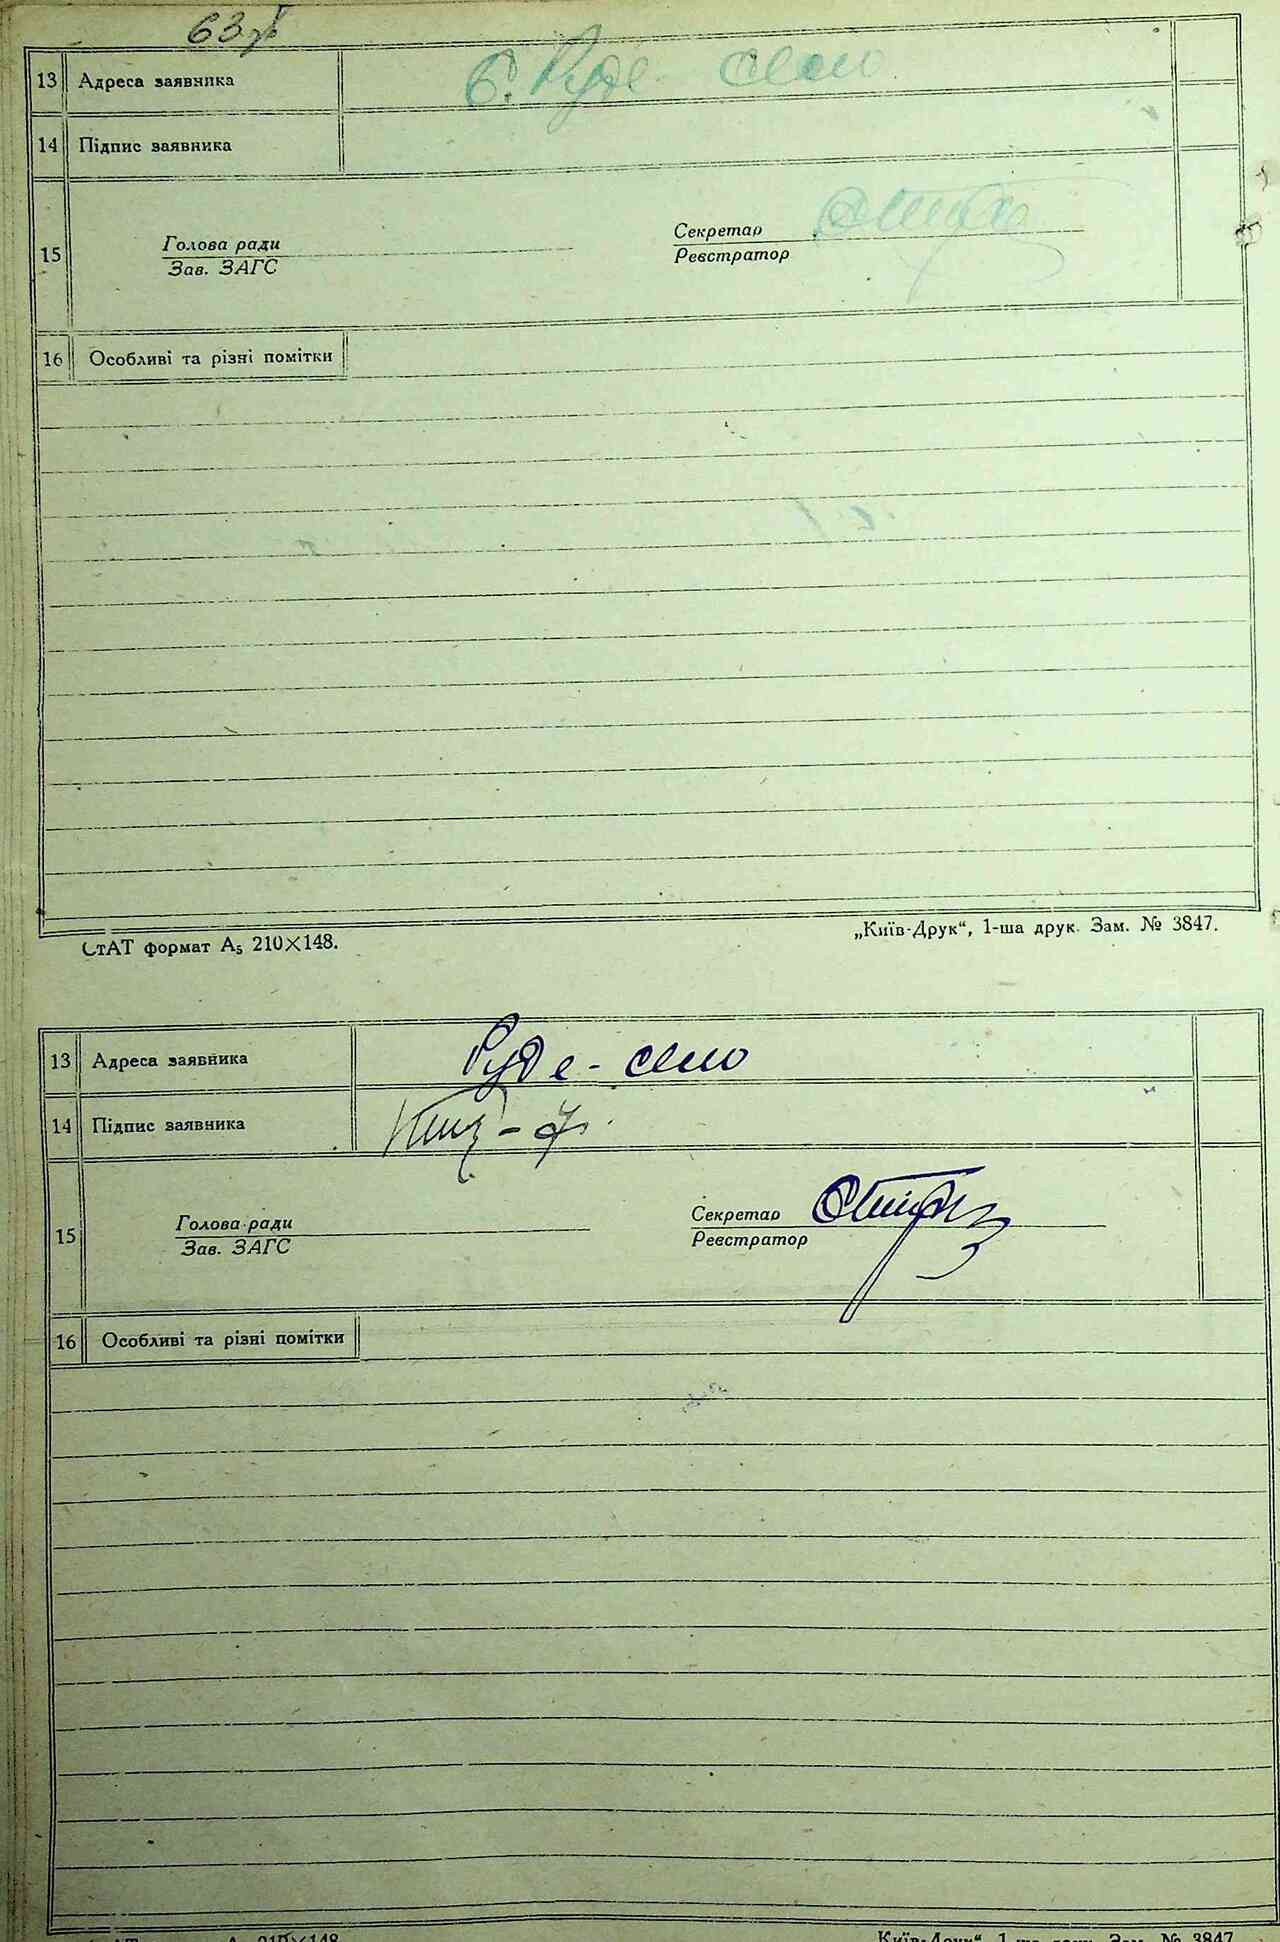 63
13 Адреса заявника с. Руде-село
14 Підпис заявника
15
Голова ради
Зав. ЗАГС
Секретар
Реєстратор
16 Особливі та різні помітки
СтАТ формат А₅ 210×148.
„Київ-Друк“, 1-ша друк. Зам. № 3847.
13 Адреса заявника Руде-село
14 Підпис заявника
15
Голова ради
Зав. ЗАГС
Секретар
Реєстратор
16 Особливі та різні помітки
А₅ 210×148
„Київ-Друк“, 1-ша друк. Зам. № 3847